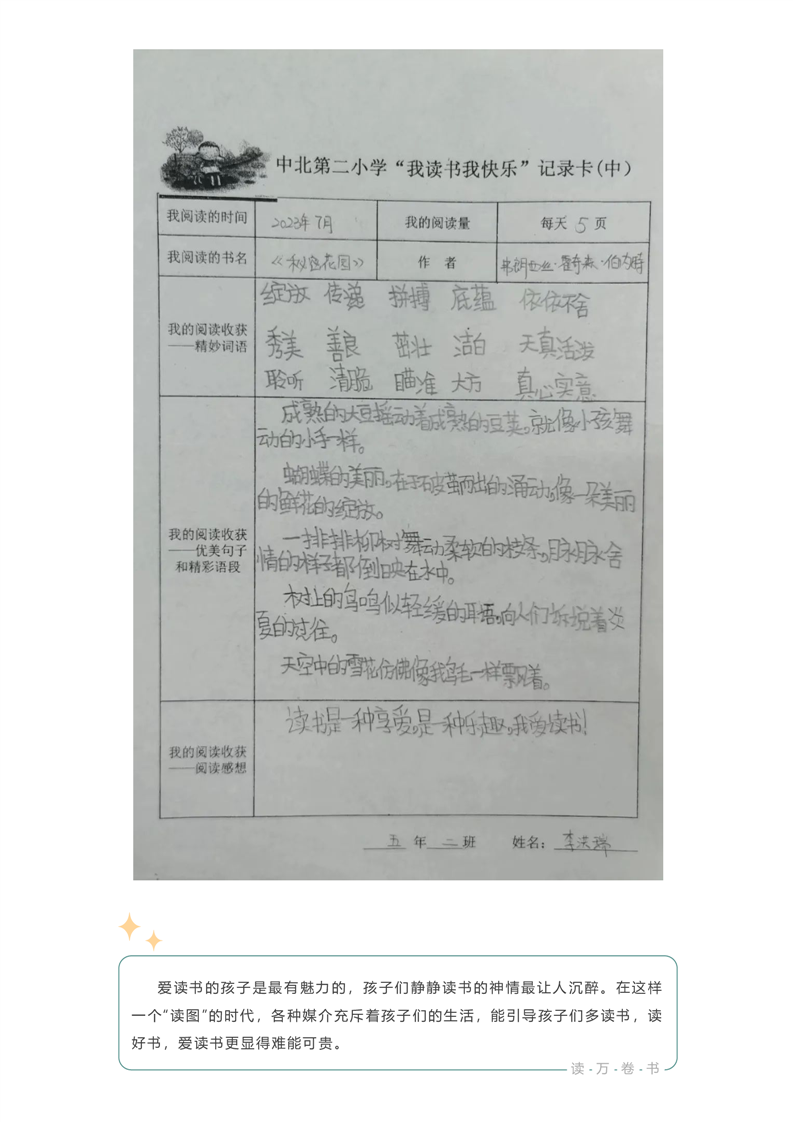 中北第二小学“我读书我快乐”记录卡(中)
我阅读的时间 2023年7月 我的阅读量 每天 5 页
我阅读的书名 《秘密花园》 作者
我的阅读收获
——精妙词语
绽放 传递 拼搏 底蕴 依依不舍
秀美 善良 茁壮 洁白 天真活泼
聆听 清脆 瞄准 大方 真心实意
我的阅读收获
——优美句子
和精彩语段
成熟的大豆摇动着成熟的豆荚,就像小孩舞
动的小手一样。
蝴蝶的美丽,在于破茧而出的涌动,像一朵美丽
的鲜花的绽放。
一排排柳树舞动柔软的枝条,脉脉含
情的样子都倒映在水中。
树上的鸟鸣似轻缓的耳语,向人们诉说着炎
夏的过往。
天空中的雪花仿佛像鹅毛一样飘着。
我的阅读收获
——阅读感想
读书是一种享受,是一种乐趣,我爱读书!
五 年 二 班 姓名: 李洪瑞
爱读书的孩子是最有魅力的，孩子们静静读书的神情最让人沉醉。在这样
一个“读图”的时代，各种媒介充斥着孩子们的生活，能引导孩子们多读书，读
好书，爱读书更显得难能可贵。
读-万-卷-书